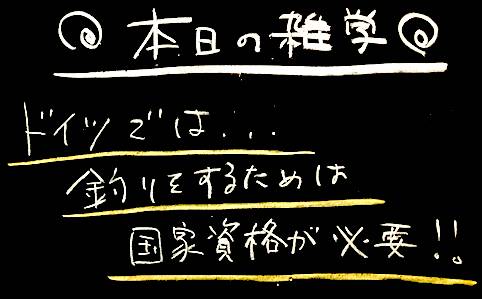 本日の雑学
ドイツでは...
釣りをするためは
国家資格が必要!!